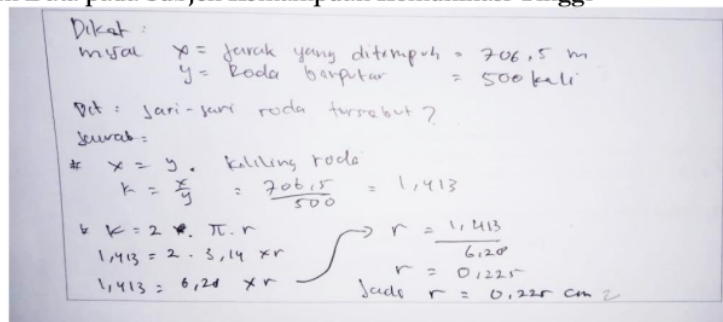 Data pada Subjek Kemampuan Komunikasi Tinggi
Diket :
misal x = Jarak yang ditempuh = 706,5 m
y = Roda berputar = 500 kali
Dit : Jari-jari roda tersebut ?
Jawab :
* x = y . Keliling roda
k = x/y = 706,5/500 = 1,413
* K = 2 . π . r
1,413 = 2 . 3,14 x r
1,413 = 6,28 x r
→ r = 1,413/6,28
r = 0,225
Jadi r = 0,225 cm